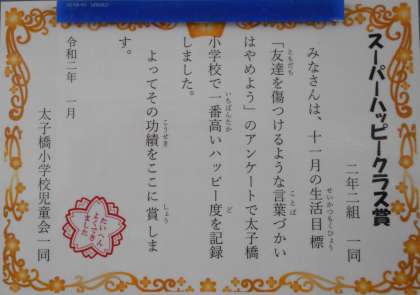 スーパーハッピークラス賞
二年二組　一同
みなさんは、十一月の生活目標
「友達を傷つけるような言葉づかい
はやめよう」のアンケートで太子橋
小学校で一番高いハッピー度を記録
しました。
よってその功績をここに賞しま
す。
令和二年　一月
太子橋小学校児童会一同
たいへん
よくでき
ました